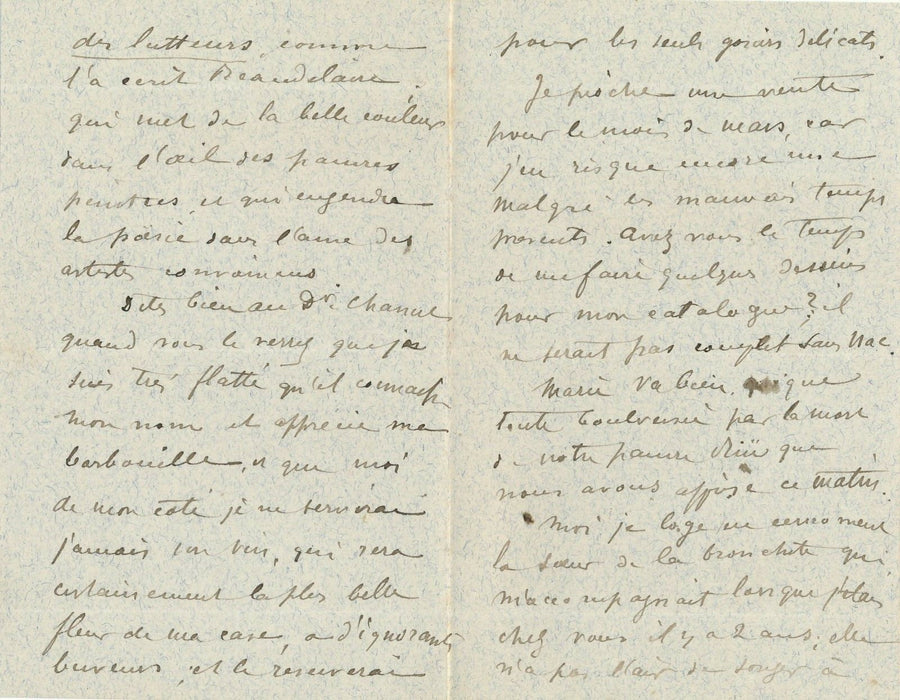 des lutteurs, comme
l'a écrit Beaudelaire
qui met de la belle couleur
dans l'œil des pauvres
peintres, et qui engendre
la poésie dans l'âme des
artistes convaincus
Dites bien au Dr.
quand vous le verrez que je
suis très flatté qu'il connaisse
mon nom et apprécie ma
barbouille, et que moi
de mon coté je ne servirai
jamais son vin, qui sera
certainement la plus belle
fleur de ma cave, a d'ignorants
buveurs, et le reserverai
pour les seuls gosiers délicats.
Je pioche une vente
pour le mois de mars, car
j'en risque encore une
malgré les mauvais temps
presents. Avez vous le temps
de me faire quelques dessins
pour mon catalogue? il
ne serait pas complet sans
Marie va bien, quique
toute boulversée par la mort
de notre pauvre que
nous avons appris ce matin.
Moi je loge en ce moment
la sœur de la bronchite qui
m'accompagnait lorsque j'étais
chez vous il y a 2 ans, elle
n'a pas l'air de songer à